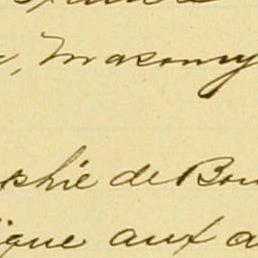 Masonry
phie de Bou
ique aux a